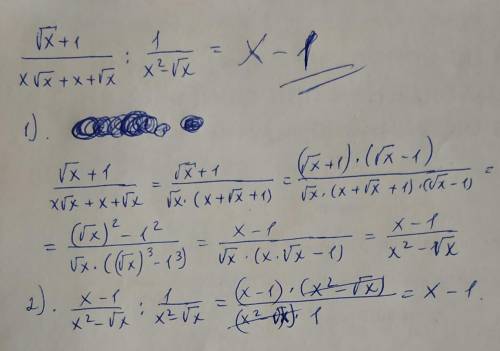 (√x + 1)/(x√x + x + √x) : 1/(x² - √x) = x - 1
1).
(√x + 1)/(x√x + x + √x) = (√x + 1)/(√x · (x + √x + 1)) = ((√x + 1) · (√x - 1))/(√x · (x + √x + 1) · (√x - 1)) =
= ((√x)² - 1²)/(√x · ((√x)³ - 1³)) = (x - 1)/(√x · (x · √x - 1)) = (x - 1)/(x² - √x)
2). (x - 1)/(x² - √x) : 1/(x² - √x) = ((x - 1) · (x² - √x))/((x² - √x) · 1) = x - 1.